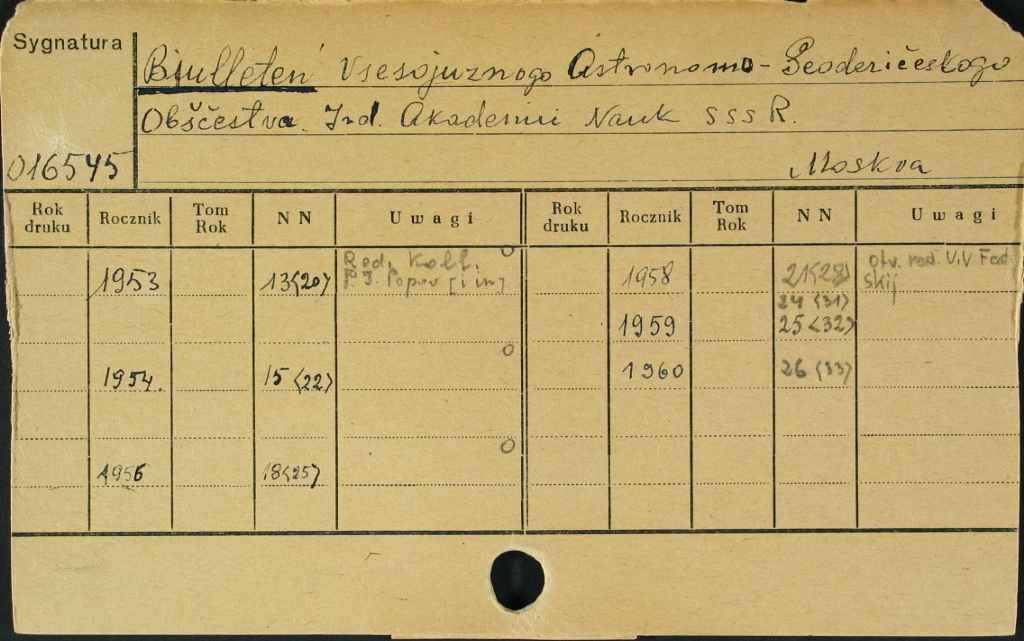 Sygnatura
Biulleteń Vsesojuznogo Astronomo-Geodezičeskogo
Obščestva. Izd. Akademii Nauk SSSR.
016545
Moskva
Rok druku Rocznik Tom Rok NN Uwagi Rok druku Rocznik Tom Rok NN Uwagi
1953 13<20> Red. Koll. 1958 21<28> otv. red. V.V Fed
P. I. Popov [i in] skij
24 <31>
1959 25<32>
1954. 15<22> 1960 26<33>
1956 18<25>